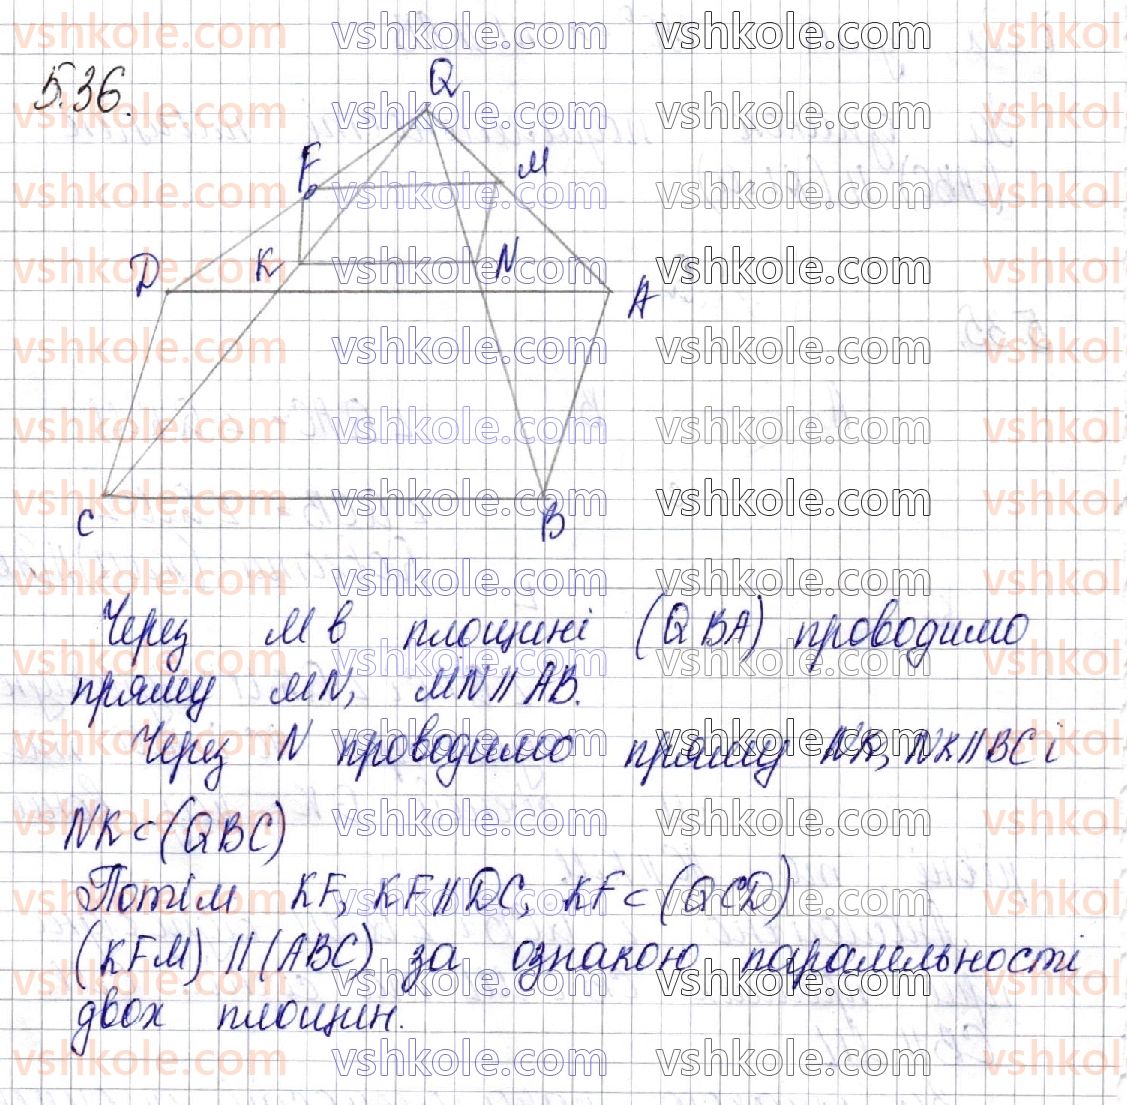 5.36.
Q
F
M
D
K
N
A
C
B
Через M в площині (QBA) проводимо
пряму MN, MN || AB.
Через N проводимо пряму NK, NK || BC і
NK ⊂ (QBC)
Потім KF, KF || DC, KF ⊂ (QCD)
(KFM) || (ABC) за ознакою паралельності
двох площин.
vshkole.com